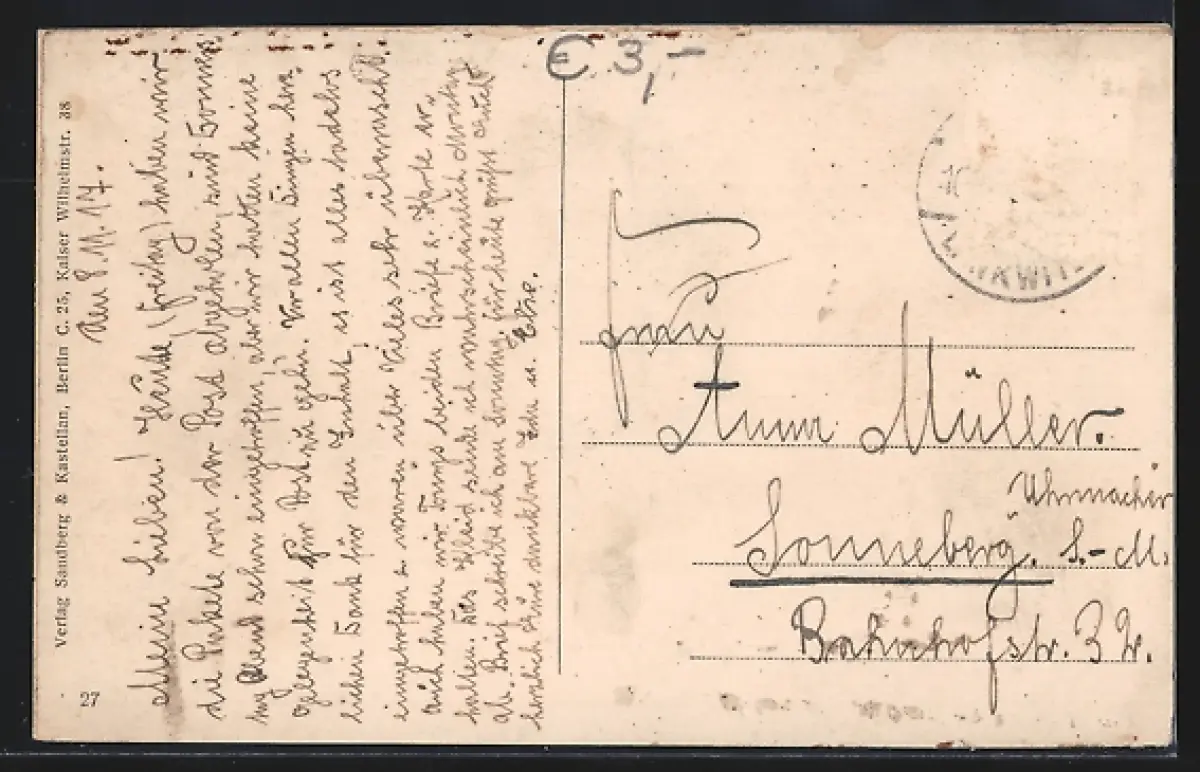 Verlag Sandberg & Kastellan, Berlin C. 25, Kaiser Wilhelmstr. 38
27
Den 8.11.17.
Meine Lieben! Heute (Freitag) haben wir
die Pakete von der Post abgeholen, sind Donners
tag Abend schon eingetroffen, aber wir hatten keine
gelegenheit zur Post zu gehn. Vor allen Dingen herz
lichen Dank für den Inhalt, es ist alles tadelos
eingetroffen & waren über Vieles sehr überrascht.
Auch haben wir Eure beiden Briefe & Karte er
halten. Das Kleid sende ich wahrscheinlich Montag
ab. Brief schreibe ich am Sonntag, für heute grüßt Euch
herzlich Eure dankbare u. Else.
€ 3,-
Frau
Anna Müller.
Uhrmacher
Sonneberg. S.-M.
Bahnhofstr. 32.